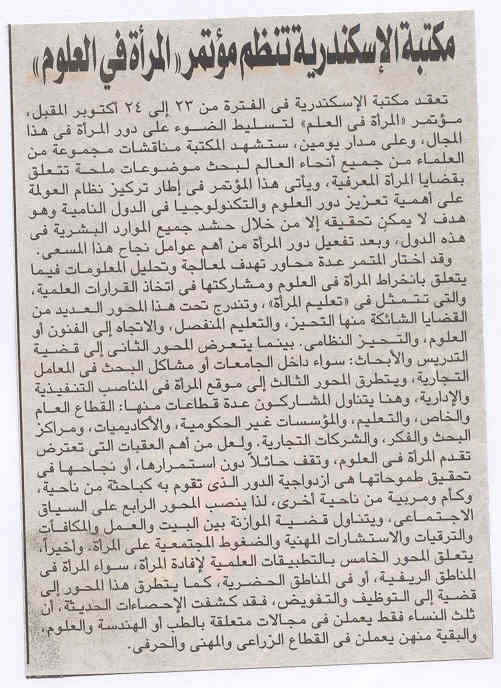 مكتبة الإسكندرية تنظم مؤتمر «المرأة في العلوم»
تعقد مكتبة الإسكندرية فى الفترة من ٢٣ إلى ٢٤ اكتوبر المقبل،
مؤتمر «المرأة فى العلم» لتسليط الضوء على دور المرأة فى هذا
المجال، وعلى مدار يومين، ستشهد المكتبة مناقشات مجموعة من
العلماء من جميع أنحاء العالم لبحث موضوعات ملحة تتعلق
بقضايا المرأة المعرفية، ويأتى هذا المؤتمر فى إطار تركيز نظام العولمة
على أهمية تعزيز دور العلوم والتكنولوجيا فى الدول النامية وهو
هدف لا يمكن تحقيقه إلا من خلال حشد جميع الموارد البشرية فى
هذه الدول، وبعد تفعيل دور المرأة من أهم عوامل نجاح هذا المسعى.
وقد اختار المتمر عدة محاور تهدف لمعالجة وتحليل المعلومات فيما
يتعلق بانخراط المرأة فى العلوم ومشاركتها فى اتخاذ القرارات العلمية،
والتى تتمثل فى «تعليم المرأة»، وتندرج تحت هذا المحور العديد من
القضايا الشائكة منها التحيز، والتعليم المنفصل، والاتجاه إلى الفنون أو
العلوم، والتحيز النظامى. بينما يتعرض المحور الثانى إلى قضية
التدريس والأبحاث: سواء داخل الجامعات أو مشاكل البحث فى المعامل
التجارية، ويتطرق المحور الثالث إلى موقع المرأة فى المناصب التنفيذية
والإدارية، وهنا يتناول المشاركون عدة قطاعات منها: القطاع العام
والخاص، والتعليم، والمؤسسات غير الحكومية، والأكاديميات، ومراكز
البحث والفكر، والشركات التجارية. ولعل من أهم العقبات التى تعترض
تقدم المرأة فى العلوم، وتقف حائلاً دون استمرارها، أو نجاحها فى
تحقيق طموحاتها هى ازدواجية الدور الذى تقوم به كباحثة من ناحية،
وكأم ومربية من ناحية أخرى، لذا ينصب المحور الرابع على السياق
الاجتماعى، ويتناول قضية الموازنة بين البيت والعمل والمكافآت
والترقيات والاستشارات المهنية والضغوط المجتمعية على المرأة. وأخيراً،
يتعلق المحور الخامس بالتطبيقات العلمية لإفادة المرأة، سواء المرأة فى
المناطق الريفية، أو فى المناطق الحضرية، كما يتطرق هذا المحور إلى
قضية إلى التوظيف والتفويض، فقد كشفت الإحصاءات الحديثة، أن
ثلث النساء فقط يعملن فى مجالات متعلقة بالطب أو الهندسة والعلوم،
والبقية منهن يعملن فى القطاع الزراعى والمهنى والحرفى.